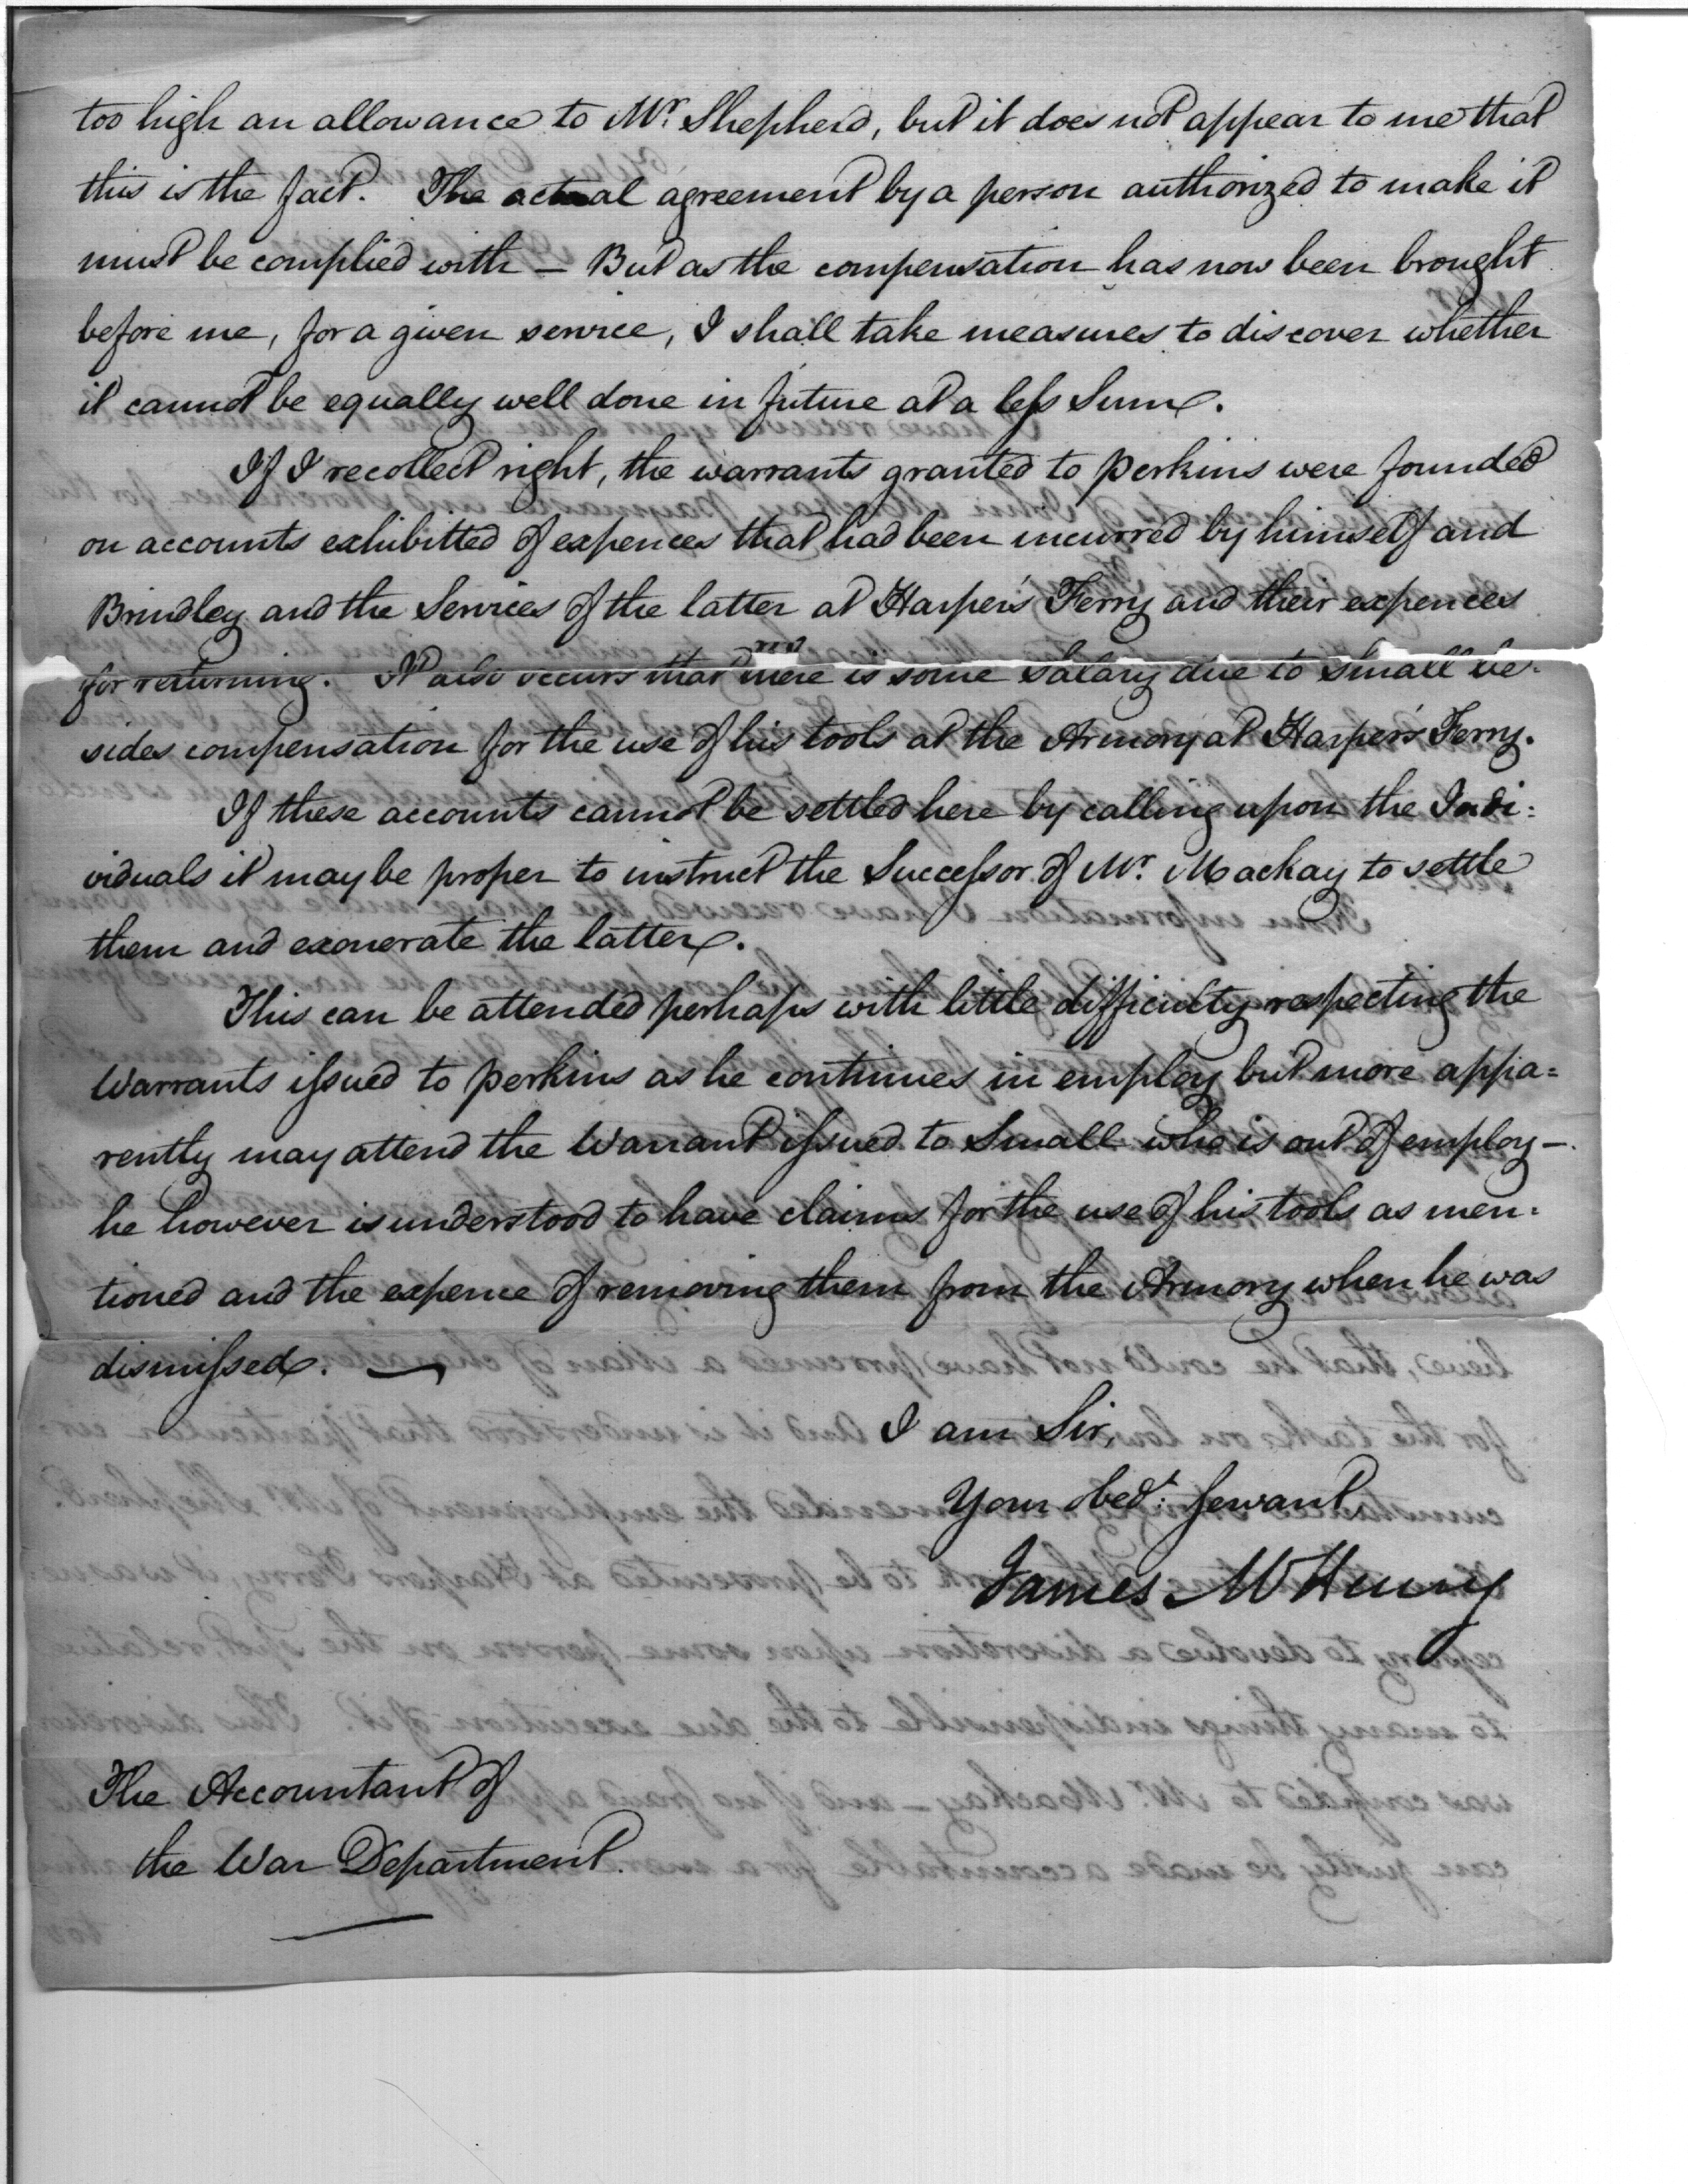 too high an allowance to Mr. Shepherd, but it does not appear to me that
this is the fact. The actual agreement by a person authorized to make it
must be complied with — But as the compensation has now been brought
before me, for a given service, I shall take measures to discover whether
it cannot be equally well done in future at a leſs Sum.
If I recollect right, the warrants granted to Perkins were founded
on accounts exhibitted of expences that had been incurred by himself and
Brindley and the Services of the latter at Harper's Ferry and their expences
for returning. It also occurs that there is some Salary due to Small be-
sides compensation for the use of his tools at the Armory at Harper's Ferry.
If these accounts cannot be settled here by calling upon the Indi:
viduals it may be proper to instruct the Succeſsor of Mr. Mackay to settle
them and exonerate the latter.
This can be attended perhaps with little difficulty respecting the
Warrants iſsued to Perkins as he continues in employ but more appa=
rently may attend the Warrant iſsued to Small who is out of employ —
he however is understood to have claims for the use of his tools as men:
tioned and the expence of removing them from the Armory when he was
dismiſsed. —
I am Sir,
Your obedt: Servant,
James McHenry
The Accountant of
the War Department.